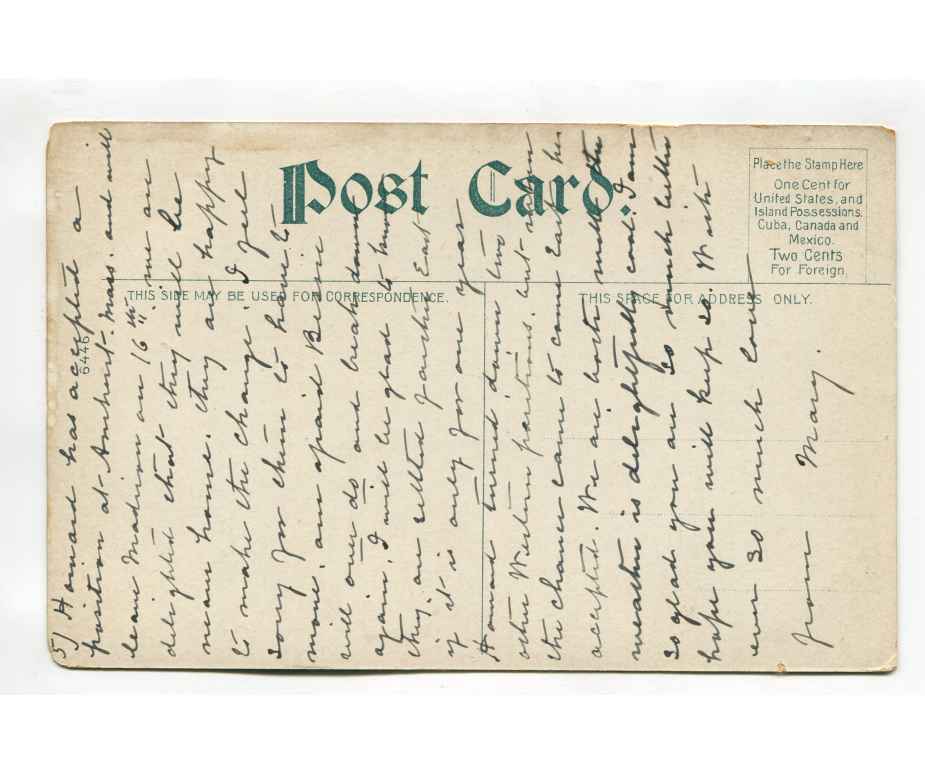 Post Card.
Place the Stamp Here
One Cent for
United States, and
Island Possessions.
Cuba, Canada and
Mexico.
Two Cents
For Foreign.
THIS SIDE MAY BE USED FOR CORRESPONDENCE.
THIS SPACE FOR ADDRESS ONLY.
6446
5) Howard has accepted a
position at Amherst. Mass. and will
leave Madison on 16th we are
delighted that they will be
near home. they are happy
to make the change. I feel
sorry for them to have to
move. am afraid Bessie
will over do and break down
again. I will be glad to know
they are settled farther East
if it is only for one year
Howard turned down two
other Western positions. but when
the chance came to come East he
accepted. We are both well the
weather is delightfully cool. I am
so glad you are so much better
hope you will keep so. With
ever so much love
from Mary.